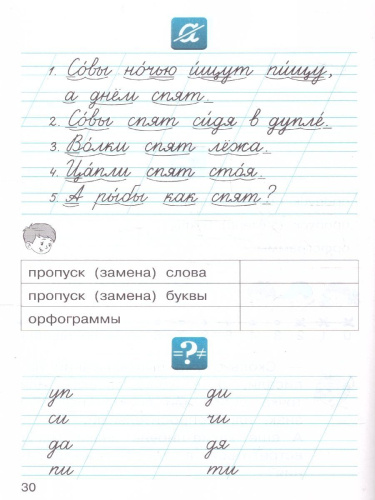 1. Со́вы но́чью и́щут пи́щу,
а днём спят.
2. Со́вы спят си́дя в дупле́.
3. Во́лки спят лёжа.
4. Ца́пли спят сто́я.
5. А ры́бы как спят?
пропуск (замена) слова
пропуск (замена) буквы
орфограммы
=?≠
уп ди
си чи
да дя
пи ти
30